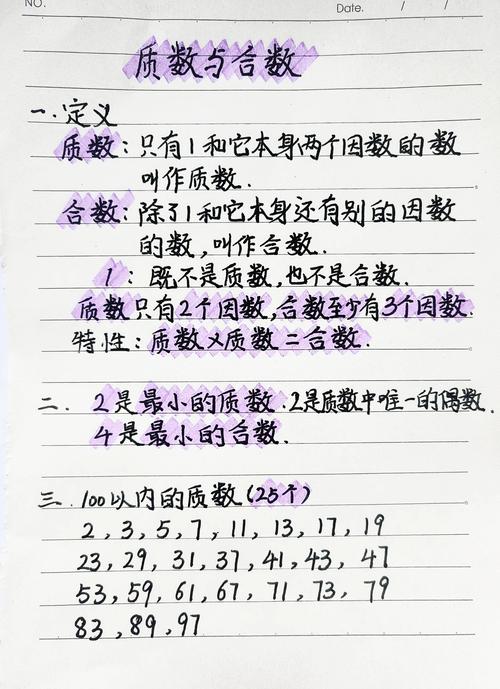 NO.
Date. / /
质数与合数
一.定义
质数:只有1和它本身两个因数的数
叫作质数.
合数:除了1和它本身还有别的因数
的数,叫作合数.
1:既不是质数,也不是合数.
质数只有2个因数,合数至少有3个因数.
特性:质数×质数=合数.
二. 2是最小的质数.2是质数中唯一的偶数.
4是最小的合数.
三.100以内的质数(25个)
2,3,5,7,11,13,17,19
23,29,31,37,41,43,47
53,59,61,67,71,73,79
83,89,97